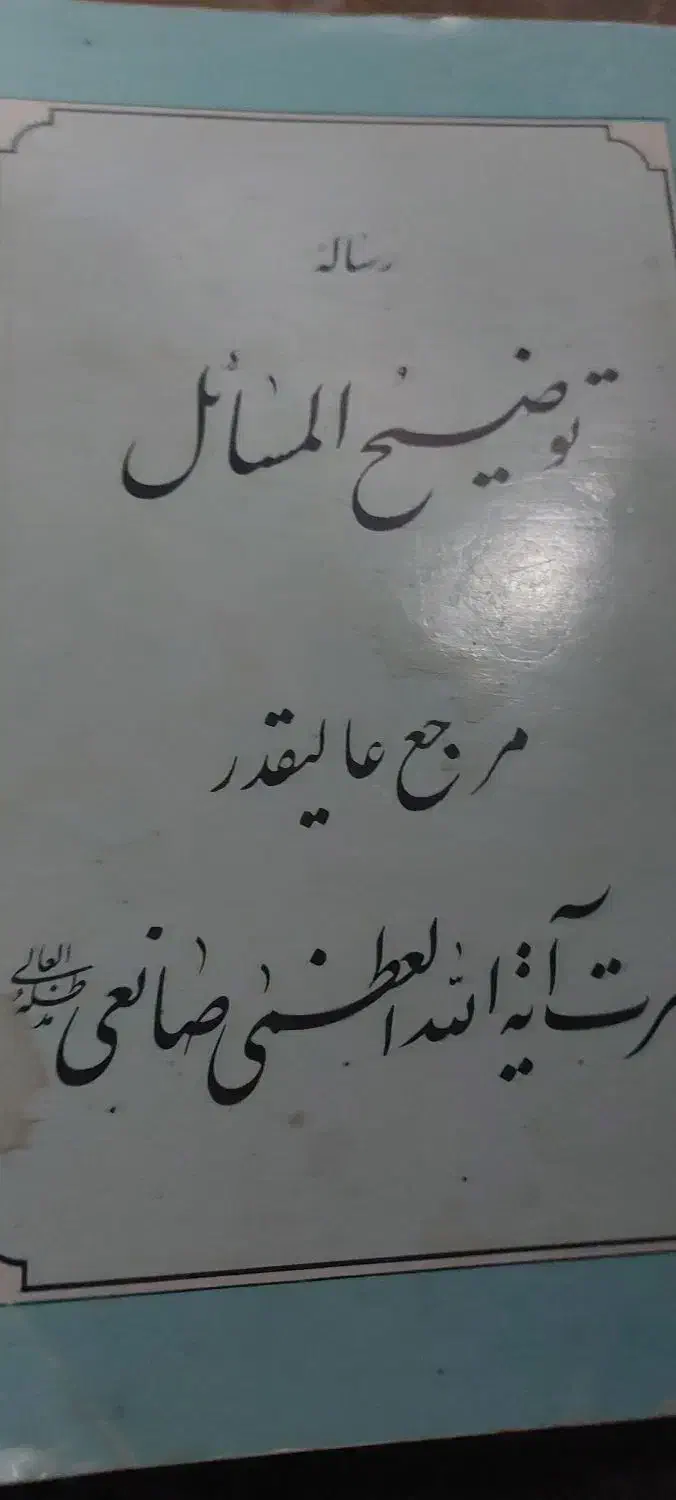 رسالهٔ
توضیح المسائل
مرجع عالیقدر
آیة الله العظمی صانعی مدظله العالی